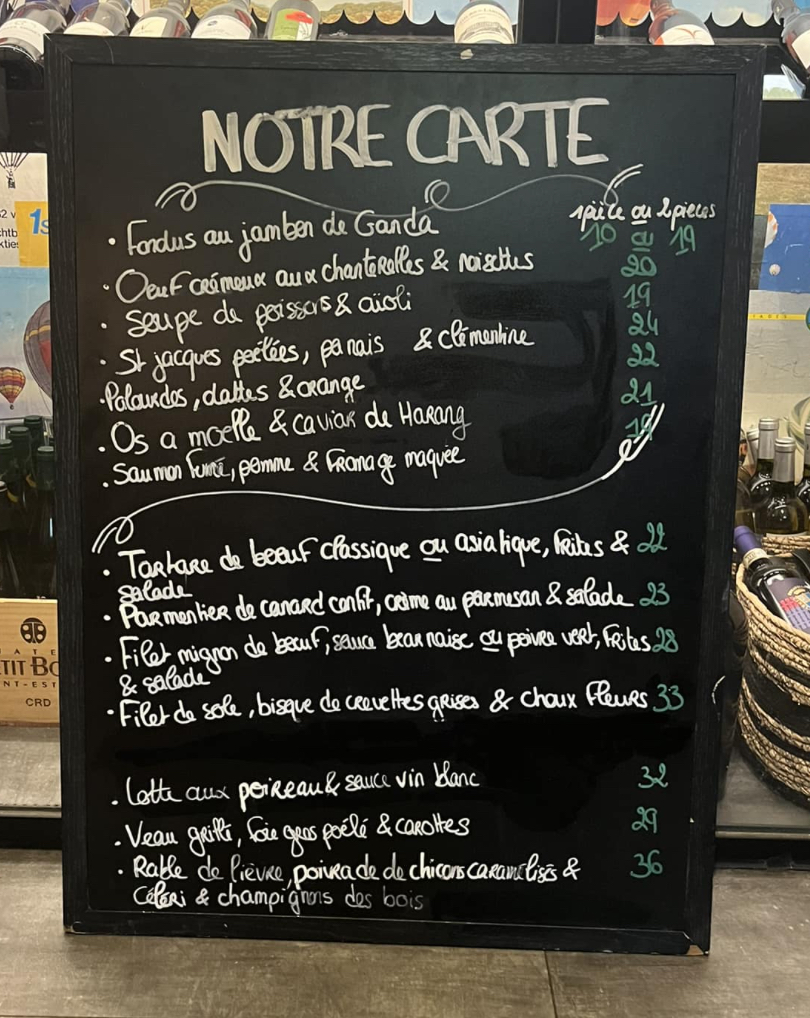 NOTRE CARTE
1pièce ou 2pieces
· Fondus au jambon de Ganda 10 ou 19
· Oeuf crémeux aux chanterelles & noisettes 20
· Soupe de poissons & aïoli 19
· St jacques poêlées, panais & clémentine 24
· Palourdes, dattes & orange 22
· Os a moelle & caviar de Hareng 21
· Saumon fumé, pomme & fromage maquée 19
· Tartare de boeuf classique ou asiatique, frites & 22
salade
· Parmentier de canard confit, crème au parmesan & salade 23
· Filet mignon de boeuf, sauce bearnaise ou poivre vert, frites 28
& salade
· Filet de sole, bisque de crevettes grises & choux fleurs 33
· Lotte aux poireau & sauce vin blanc 32
· Veau grillé, foie gras poêlé & carottes 29
· Rable de lièvre, poivrade de chicons caramélisés & 36
Céleri & champignons des bois
TIT BO
NT-EST
CRD